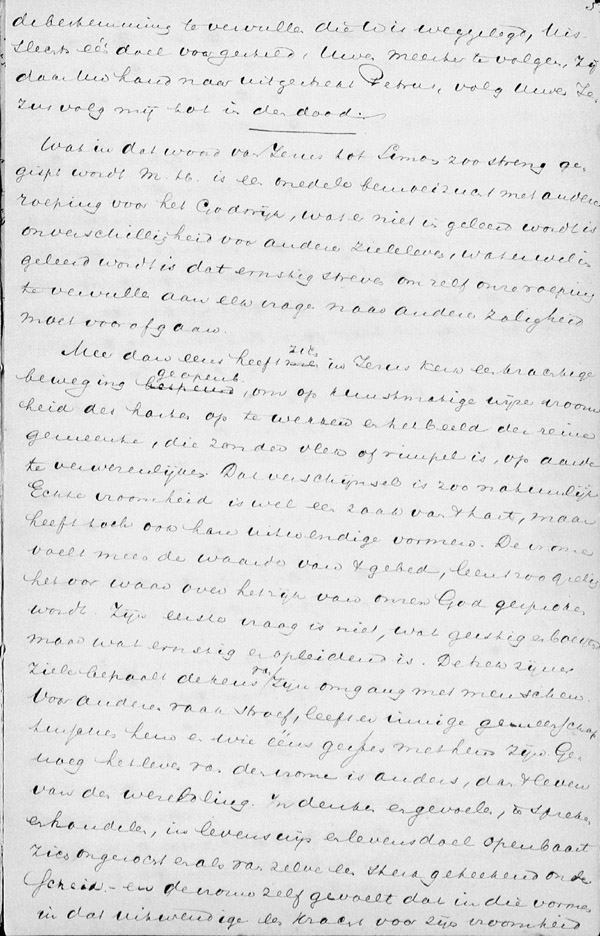 de bestemming te vervullen die U is weggelegd, U is
slechts één doel voorgesteld, Uwen meester te volgen, zij
daar Uw hand naar uitgestrekt Petrus, volg Uwen Je-
zus volg mij tot in den dood.
Wat in dat woord van Jezus tot Simon zoo streng ge-
gispt wordt M. H. is een onedele bemoeizucht met anderer
roeping voor het Godsrijk, wat er niet in geleerd wordt is
onverschilligheid voor anderer zieleleven, wat er wel in
geleerd wordt is dat ernstig streven om zelf onze roeping
te vervullen aan elke vrage naar anderer zaligheid
moet vooraf gaan.
Meer dan eens heeft zich in Jezus kerk een krachtige
beweging geopenb., om op kunstmatige wijze vroom
heid des harten op te wekken en het beeld der reine
gemeente, die zonder vlek of rimpel is, op aarde
te verwezenlijken. Dat verschijnsel is zoo natuurlijk
Echte vroomheid is wel een zaak van 't hart, maar
heeft toch ook haar uitwendige vormen. De vrome
voelt meer de waarde van 't gebed, leent zoo gretig
het oor waar over het rijk van onzen God gesproken
wordt. Zijn eerste vraag is niet, wat geestig en boeiend
maar wat ernstig en opleidend is. De trek zijner
ziele bepaalt de keus van zijn omgang met menschen.
Voor anderen vaak stroef, leeft er innige gemeenschap
tusschen hem en wie ééns geestes met hem zijn. Ge-
noeg het leven van den vrome is anders, dan 't leven
van den wereldling. In denken en gevoelen, in spreken
en handelen, in levenswijs en levensdoel openbaart
zich ongezocht en als van zelve een sterk geteekend onder
scheid - en de vrome zelf gevoelt dat in die vormen
in dat uitwendige een kracht voor zijn vroomheid